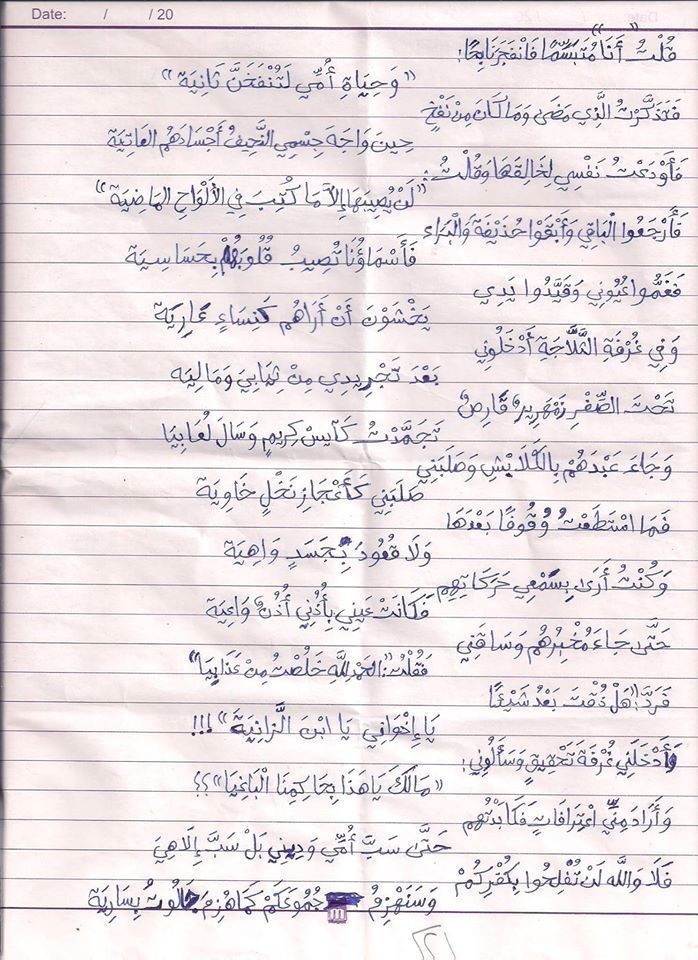 Date: / / 20
قُلْتُ "أَنَا" مُتَبَسِّمًا فَانْفَجَرَ نَابِحًا:
"وَحِيَاةِ أُمِّي لَتُنْفَخَنَّ ثَانِيَة"
فَتَذَكَّرْتُ الَّذِي مَضَى وَمَا كَانَ مِنْ نَفْخٍ
حِينَ وَاجَهَ جِسْمِي النَّحِيفُ أَجْسَادَهُم العَاتِيَة
فَأَوْدَعْتُ نَفْسِي لِخَالِقِهَا وَقُلْتُ:
"لَنْ يُصِيبَهَا إِلَّا مَا كُتِبَ فِي الأَلْوَاحِ المَاضِيَة"
فَأَرْجَعُوا الْبَاقِي وَأَبْقَوْا حُذَيْفَةَ وَالْبَرَاء
فَأَسْمَاؤُنَا تُصِيبُ قُلُوبَهُمْ بِحَسَاسِيَة
فَغَمُّوا عُيُونِي وَقَيَّدُوا يَدِي
يَخْشَوْنَ أَنْ أَرَاهُم كَنِسَاءٍ عَارِيَة
وَفِي غُرْفَةِ الثَّلَّاجَةِ أَدْخَلُونِي
بَعْدَ تَجْرِيدِي مِنْ ثِيَابِيَ وَمَالِيَه
تَحْتَ الصِّفْرِ زَمْهَرِيرٌ قَارِصٌ
تَجَمَّدْتُ كَآيِسْ كِرِيمٍ وَسَالَ لُعَابِيَا
وَجَاءَ عَبْدَهُمْ بِالْكَلَابْشِ وَصَلَبَنِي
صَلَبَنِي كَأَعْجَازِ نَخْلٍ خَاوِيَة
فَمَا اسْتَطَعْتُ وُقُوفًا بَعْدَهَا
وَلَا قُعُودَ بِجَسَدٍ وَاهِيَة
وَكُنْتُ أَرَى بِسَمْعِي حَرَكَاتِهِم
فَكَانَتْ عَيْنِي بِأُذُنِي أُذُنٌ وَاعِيَة
حَتَّى جَاءَ مُخْبِرُهُم وَسَاقَنِي
فَقُلْتُ: "الحَمْدُ للَّهِ خَلُصْتُ مِنْ عَذَابِيَا"
فَرَدَّ: "هَلْ ذُقْتَ بَعْدُ شَيْئًا
يَا إِخْوَانِي يَا ابْنَ الَّزانِيَةَ" !!!
وَأَدْخَلَنِي غُرْفَةَ تَحْقِيقٍ وَسَأَلُونِي:
"مَالَكَ يَا هَذَا بِحَاكِمِنَا الْبَاغِيَا"؟؟
وَأَرَادَ مِنِّي اعْتِرَافَاتٍ فَكَابَدْتُهُم
حَتَّى سَبَّ أُمِّي وَدِينِي بَلْ سَبَّ إِلَاهِيَ
فَلَا وَاللَّهِ لَنْ تُفْلِحُوا بِكُفْرِكُمْ
وَسَنَهْزِمُ جُمُوعَكُمْ كَمَا هُزِمَ جَالُوتُ بِسَارِيَة